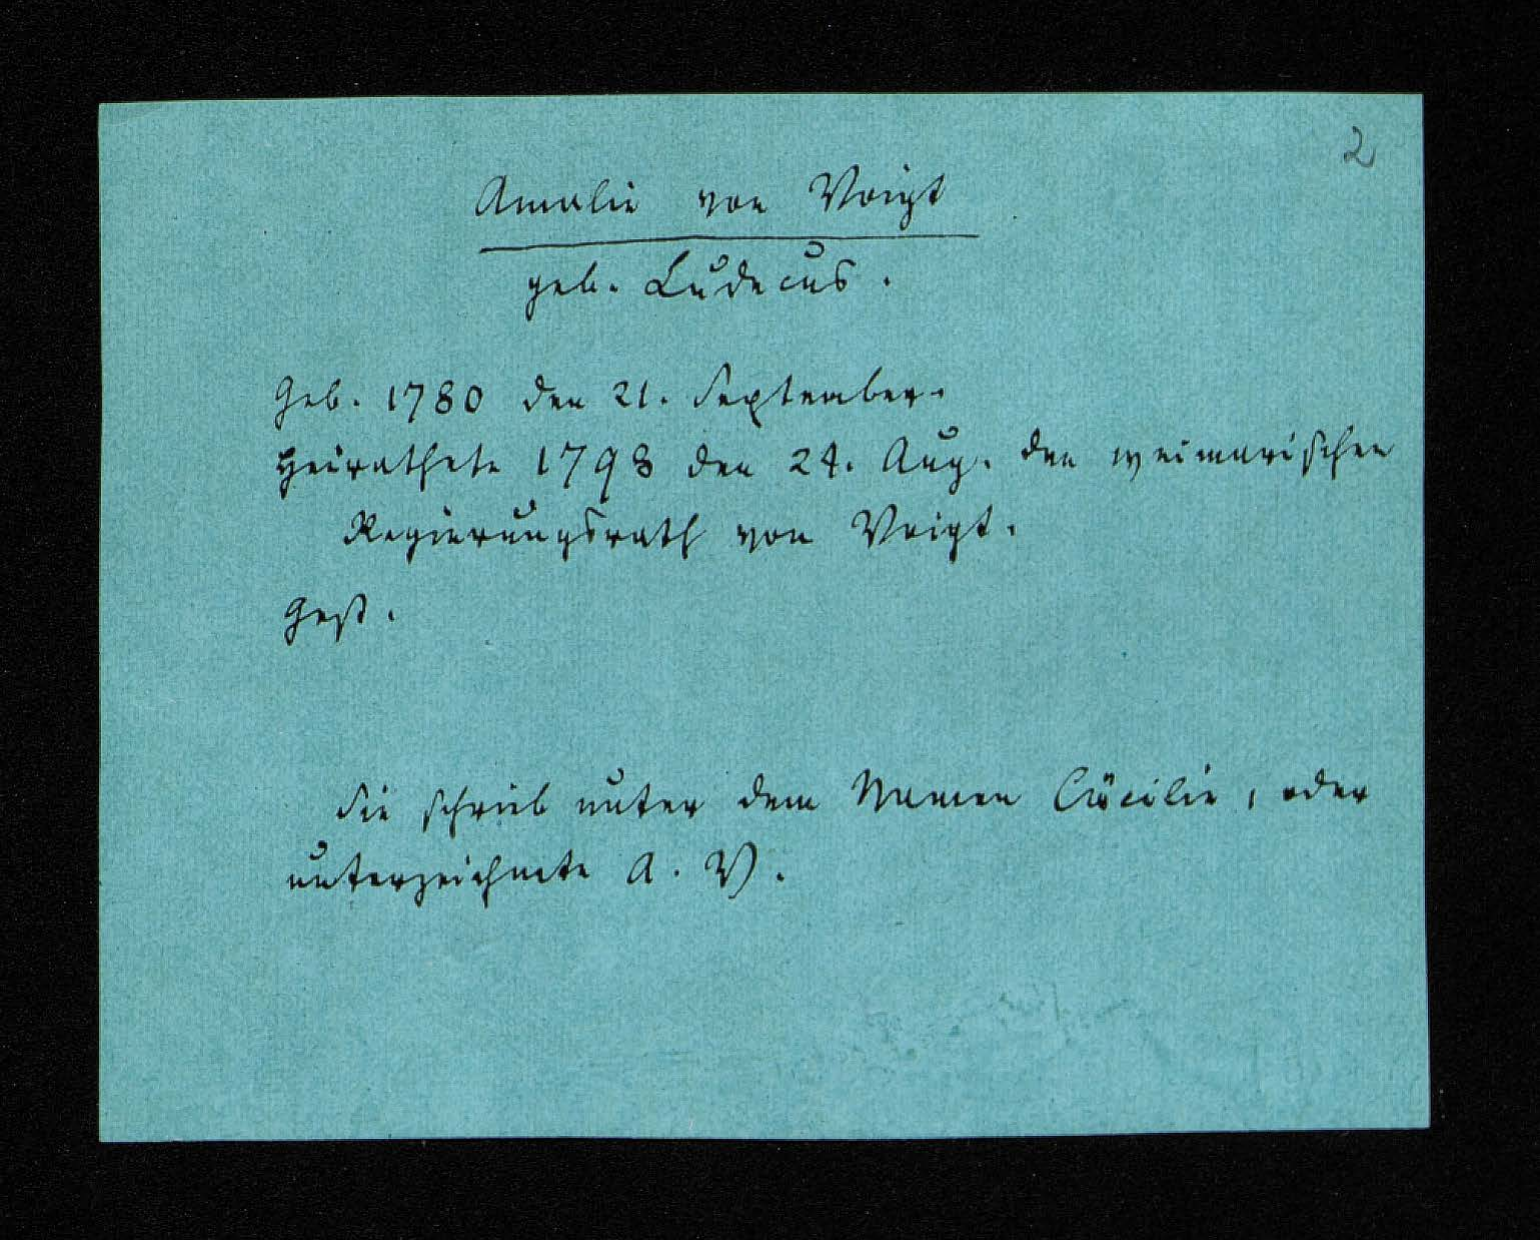 2
Amalie von Voigt
geb. Ludecus.
Geb. 1780 den 21. September.
Heirathete 1798 den 24. Aug. den weimarischen
Regierungsrath von Voigt.
Gest.
Sie schrieb unter dem Namen Cäcilie, oder
unterzeichnete A. V.